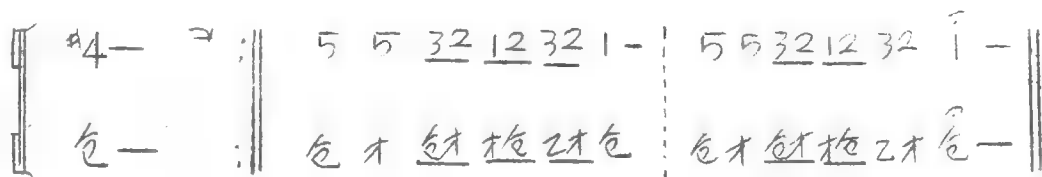 #4— :‖ 5 5 32 12 32 1 - ¦ 5 5 32 12 32 1 — ‖
仓— :‖ 仓 才 仓才 才仓 乙才 仓 ¦ 仓 才 仓才 才仓 乙才 仓 — ‖